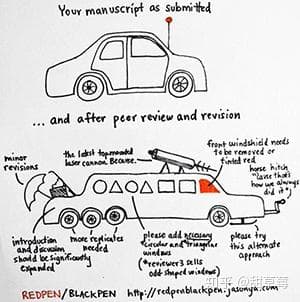 Your manuscript as submitted
... and after peer review and revision
minor
revisions
the latest top-mounted
laser cannon. Because.
front windshield needs
to be removed or
tinted red
horse hitch
"cause that's how
we always
did it"
introduction
and discussion
should be significantly
expanded
more replicates
needed
please add necessary
*circular and triangular
windows
(*reviewer 3 sells
odd shaped windows)
please try
this alternate
approach
知乎 @甜草莓
REDPEN/BLACKPEN http://redpenblackpen.jasonya.com